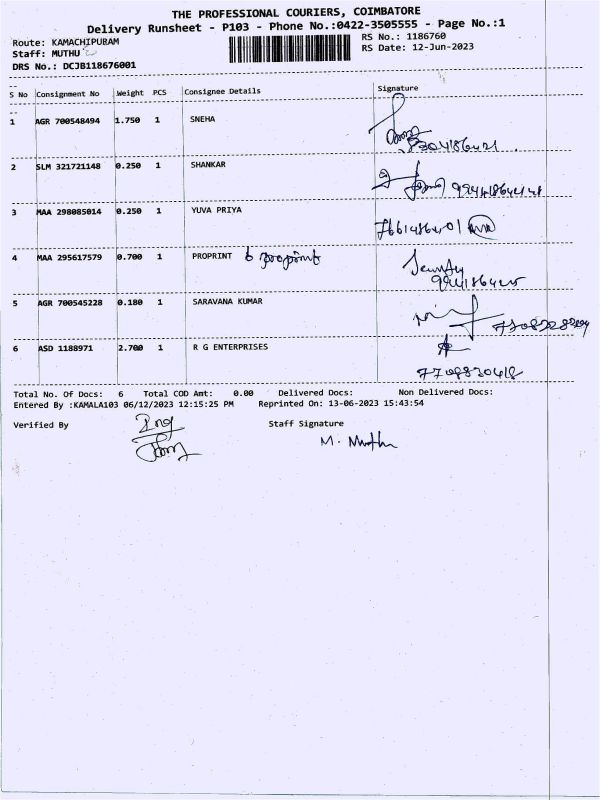 THE PROFESSIONAL COURIERS, COIMBATORE
Delivery Runsheet - P103 - Phone No.:0422-3505555 - Page No.:1
Route: KAMACHIPURAM RS No.: 1186760
Staff: MUTHU RS Date: 12-Jun-2023
DRS No.: DCJB118676001
S No Consignment No Weight PCS Consignee Details Signature
1 AGR 700548494 1.750 1 SNEHA
2 SLM 321721148 0.250 1 SHANKAR
3 MAA 298085014 0.250 1 YUVA PRIYA
4 MAA 295617579 0.700 1 PROPRINT
5 AGR 700545228 0.180 1 SARAVANA KUMAR
6 ASD 1188971 2.700 1 R G ENTERPRISES
7708820418
Total No. Of Docs: 6 Total COD Amt: 0.00 Delivered Docs: Non Delivered Docs:
Entered By :KAMALA103 06/12/2023 12:15:25 PM Reprinted On: 13-06-2023 15:43:54
Verified By Staff Signature
M. Muthu